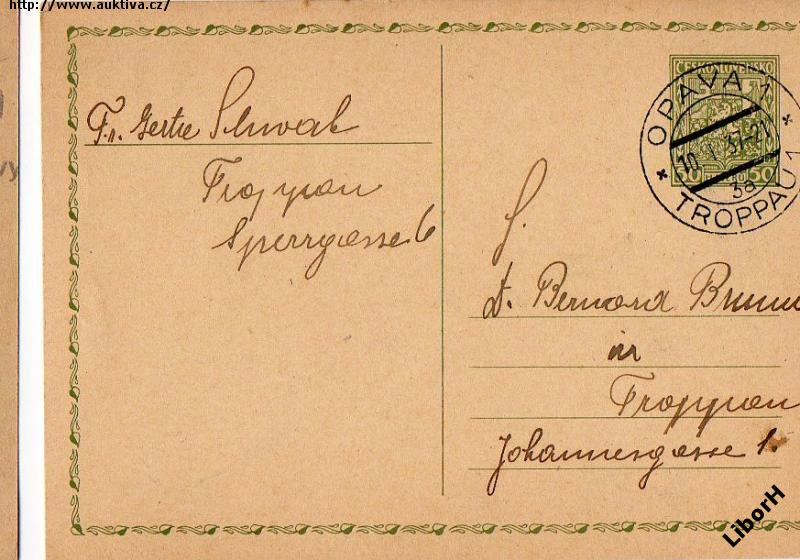 http://www.auktiva.cz/
ČESKOSLOVENSKO
50 50
OPAVA 1
10. V. 37-21
3a
TROPPAU 1
Fr. Gerte Schwab
Troppau
Sperrgasse 6
S.
D. Bernard
in
Troppau
Johannesgasse 1.
LiborH